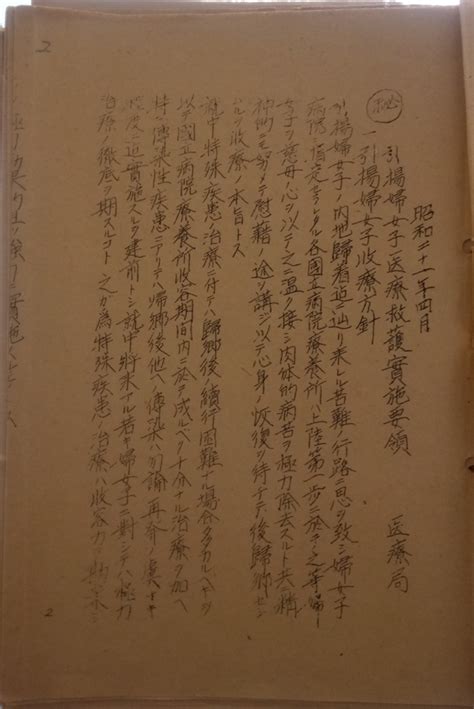 2
㊙
昭和二十一年四月
医療局
引揚婦女子医療救護實施要領
一引揚婦女子收療方針
引揚婦女子ノ内地歸着迄ニ辿リ来レル苦難ノ行路ニ思ヲ致シ婦女子
病院ニ指定セラレタル各國立病院療養所ハ上陸第一歩ニ於テ之等婦
女子ヲ慈母ノ心ヲ以テ之ニ温ク接シ肉体的病苦ヲ極力除去スルト共ニ精
神的ニモ慰藉ノ途ヲ講ジ以テ心身ノ恢復ヲ待チテ後歸郷セシ
ムルヲ收療ノ本旨トス
就中特殊疾患ノ治療ニ付テハ歸郷後ノ續行困難ナル場合多カルベキヲ
以テ國立病院療養所收容期間内ニ於テ成ルベク十分ナル治療ヲ加ヘ
特ニ傳染性疾患ニアリテハ帰郷後他ヘノ傳染ハ勿論再発ノ虞ナキ
程度ニ迄實施スルヲ建前トシ就中将来アル若キ婦女子ニ對シテハ極力
治療ノ徹底ヲ期スルコト之ガ為特殊疾患ノ治療ハ收容力
2